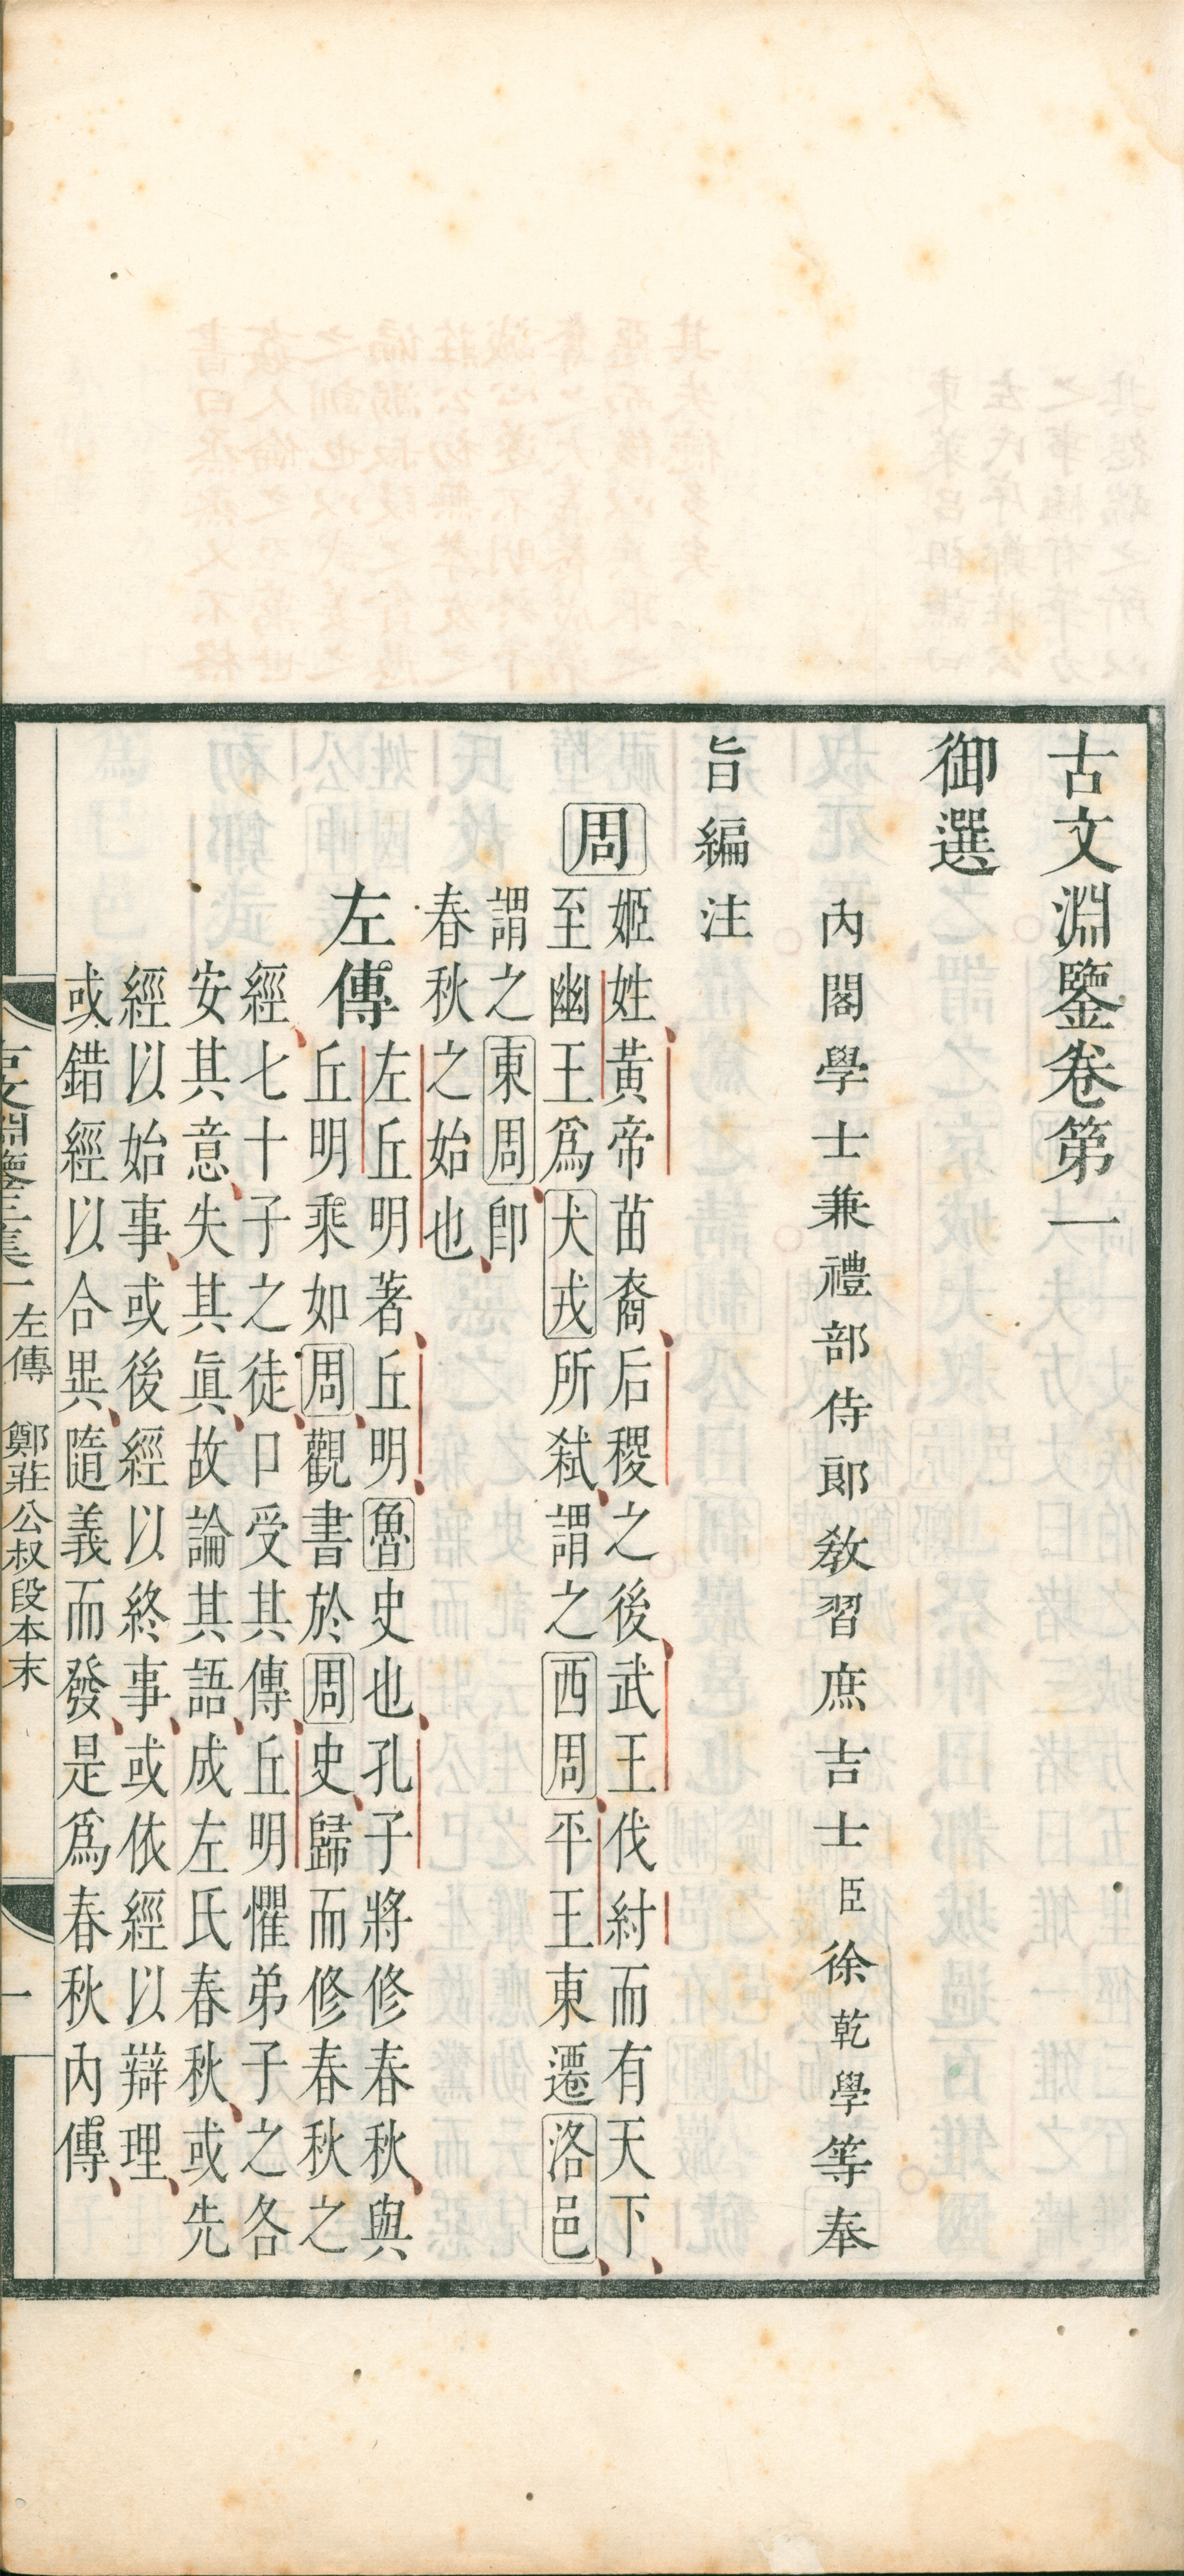 古文淵鑒卷第一
御選
內閣學士兼禮部侍郎教習庶吉士臣徐乾學等奉
旨編注
周
姬姓黃帝苗裔后稷之後武王伐紂而有天下
至幽王爲犬戎所弒謂之西周平王東遷洛邑
謂之東周卽
春秋之始也
左傳
左丘明著丘明魯史也孔子將修春秋與
丘明乘如周觀書於周史歸而修春秋之
經七十子之徒口受其傳丘明懼弟子之各
安其意失其眞故論其語成左氏春秋或先
經以始事或後經以終事或依經以辯理
或錯經以合異隨義而發是爲春秋內傳
古文淵鑒正集一 左傳 鄭莊公叔段本末 一